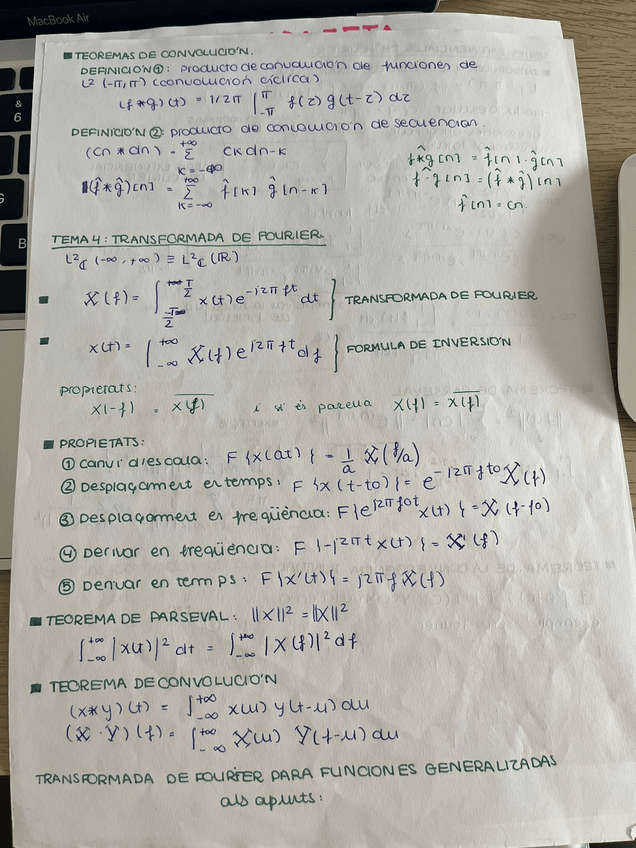 MacBook Air
& 6
B
■ TEOREMAS DE CONVOLUCIÓN.
DEFINICIÓN ①: producto de convolución de funciones de
L² (-π,π) (convolución cíclica)
(f*g)(t) = 1/2π ∫_{-π}^{π} f(τ) g(t-τ) dτ
DEFINICIÓN ②: producto de convolución de secuencias
(cn * dn) = Σ_{k=-∞}^{+∞} ck dn-k
(f̂*ĝ)[n] = Σ_{k=-∞}^{+∞} f̂[k] ĝ[n-k]
f*g[n] = f̂[n] · ĝ[n]
f·g[n] = (f̂*ĝ)[n]
f̂[n] = cn.
TEMA 4: TRANSFORMADA DE FOURIER.
L²ℂ (-∞, +∞) ≡ L²ℂ (ℝ)
■ X(f) = ∫ x(t) e^{-j2πft} dt } TRANSFORMADA DE FOURIER
■ x(t) = ∫_{-∞}^{+∞} X(f) e^{j2πft} df } FORMULA DE INVERSIÓN
Propietats:
X(-f) = \overline{X(f)} i si és parella X(f) = \overline{X(f)}
■ PROPIETATS:
① Canvi d'escala: F{x(at)} = 1/a X(f/a)
② Desplaçament en temps: F{x(t-to)} = e^{-j2πfto} X(f)
③ Desplaçament en freqüència: F{e^{j2πfot} x(t)} = X(f-fo)
④ Derivar en freqüència: F{-j2πt x(t)} = X'(f)
⑤ Derivar en temps: F{x'(t)} = j2πf X(f)
■ TEOREMA DE PARSEVAL: ||X||² = ||X||²
∫_{-∞}^{+∞} |x(t)|² dt = ∫_{-∞}^{+∞} |X(f)|² df
■ TEOREMA DE CONVOLUCIÓN
(x*y)(t) = ∫_{-∞}^{+∞} x(u) y(t-u) du
(X·Y)(f) = ∫_{-∞}^{+∞} X(u) Y(f-u) du
TRANSFORMADA DE FOURIER PARA FUNCIONES GENERALIZADAS
als apunts: